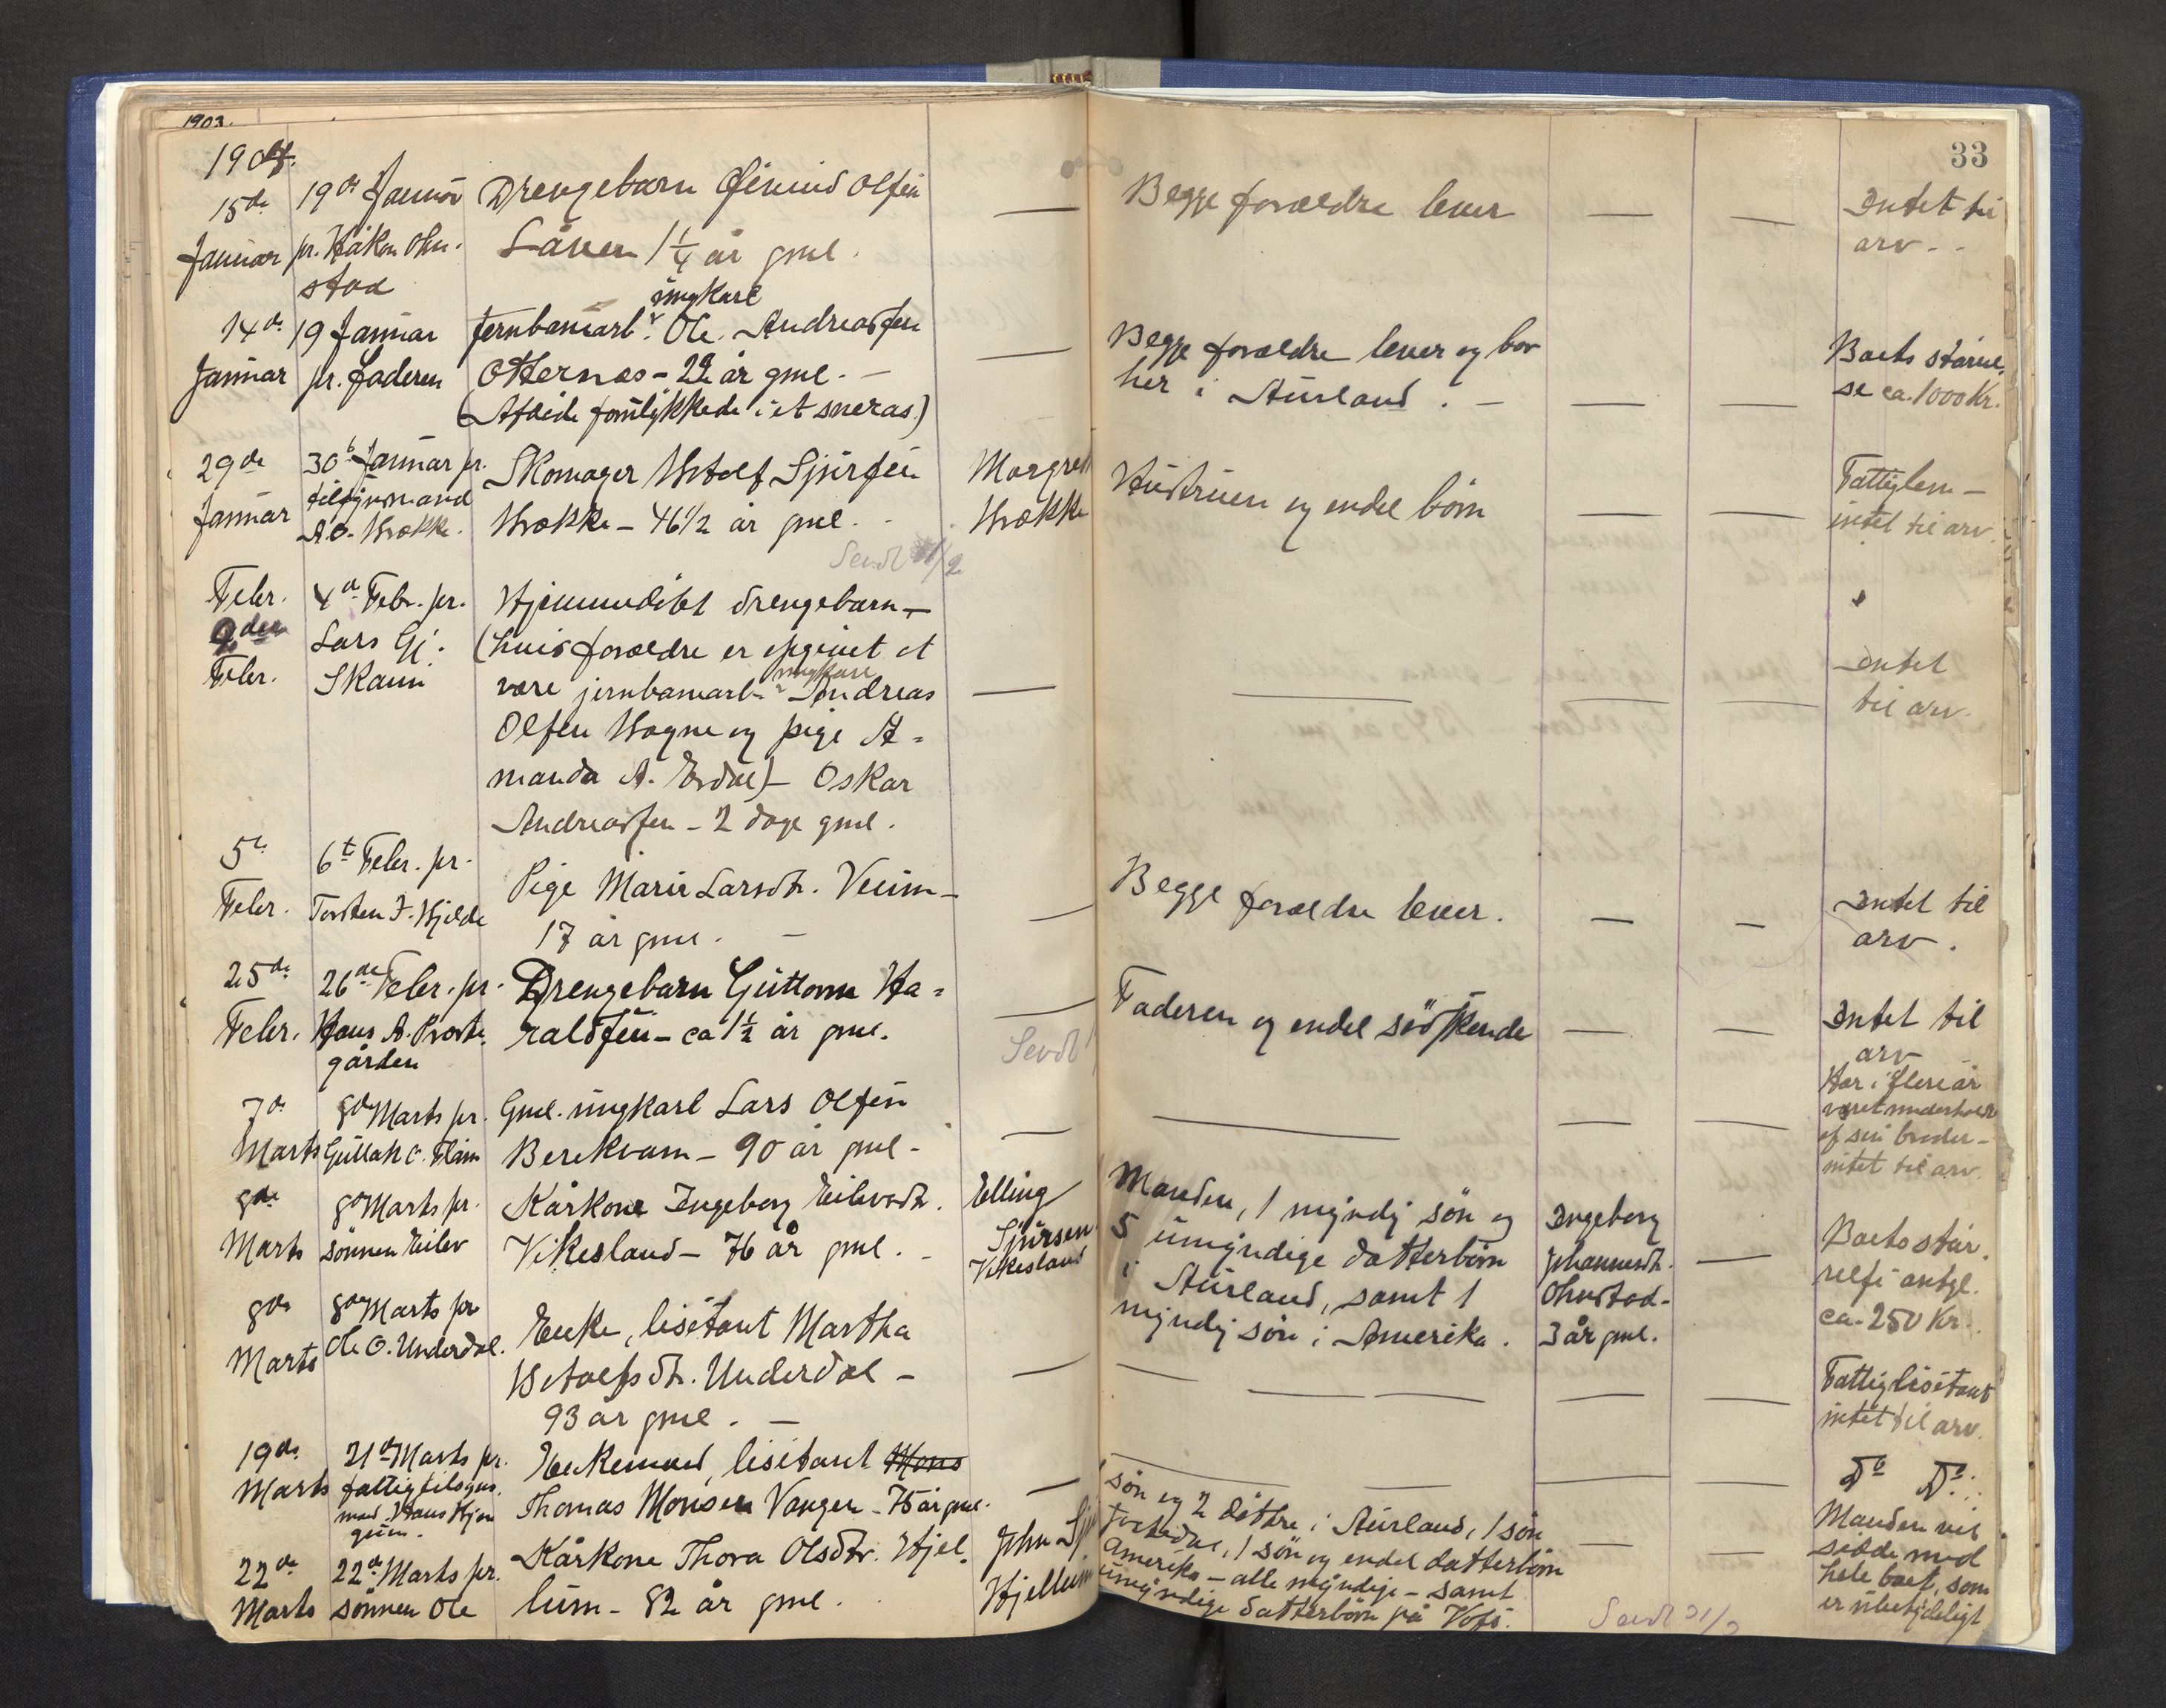 1903.
33
1904.
15de Januar
19de Januar pr. Håkon Ohn-
stad
Drengebarn Øivind Olsen
Låven 1 1/4 år gml.
—
Begge forældre lever
— —
Intet til
arv - -
14de Januar
19 Januar pr. Faderen
ungkarl
Jernbanearb. Ole Andreassen
Otternes - 22 år gml. -
(Afdøde forulykkede i et sneras.)
—
Begge forældre lever og bor
her i Aurland. -
— —
Boets størrel-
se ca. 1000 Kr.
29de Januar
30te Januar pr.
tilsynsmand
A. O. Brække.
Skomager Botolf Sjursen
Brække - 46 1/2 år gml. -
Sendt 11/2
Margret
Brække
Hustruen og endel børn
— —
Fattiglem -
intet til arv.
Febr.
2den
Febr.
4de Febr. pr.
Lars Gj.
Skaim
Hjemmedøbt drengebarn -
(hvis forældre er opgivet at
ungkarl
være jernbanearb. Andreas
Olsen Vogne og pige A-
manda A. Erdal) - Oskar
Andreassen - 2 dage gml.
—
— — —
Intet
til arv.
5te
Febr.
6te Febr. pr.
Torsten J. Hjelde
Pige Marie Larsdtr. Veum -
17 år gml. -
—
Begge forældre lever.
— —
Intet til
arv.
25de
Febr.
26de Febr. pr.
Hans A. Proste-
gården
Drengebarn Guttorm Ha-
raldsen - ca 1 1/2 år gml.
—
Sendt
Faderen og endel södskende
— —
Intet til
arv
7de
Marts
8de Marts pr.
Gullak O. Flåm
Gml. ungkarl Lars Olsen
Berekvam - 90 år gml -
—
— — —
Har i flere år
været underholdt
af sin broder -
intet til arv.
8de
Marts
8de Marts pr.
sønnen Eilev
Kårkone Ingeborg Eilevsdtr.
Vikesland - 76 år gml. -
Elling
Sjursen
Vikesland
Manden, 1 myndig søn og
5 umyndige datterbørn
i Aurland, samt 1
myndig søn i Amerika.
Ingeborg
Johannesdtr.
Ohnstad -
3 år gml.
—
Boets stør-
relse antgl.
ca. 250 Kr.
8de
Marts
8de Marts pr
Ole O. Underdal.
Enke, lisitant Martha
Botolfsdtr. Underdal -
93 år gml. -
—
— — —
— —
Fattiglisitant
intet til arv.
19de
Marts
21de Marts pr.
fattigtilsyns-
mand Hans Hjøn
Enkemand, lisitant Mons
Thomas Monsen Vangen - 75 år gml.
—
— —
— —
Do Do.
22de
Marts
22de Marts pr.
sønnen Ole
Kårkone Thora Olsdtr. Hjel-
lum - 82 år gml.
John
Hjellum
søn og 2 døttre i Aurland, 1 søn
1 søn og endel datterbørn
Amerika - alle myndige - samt
umyndige datterbørn på Voss.
— —
Sendt 31/3
Manden vil
sidde med
hele boet, som
er ubetydeligt